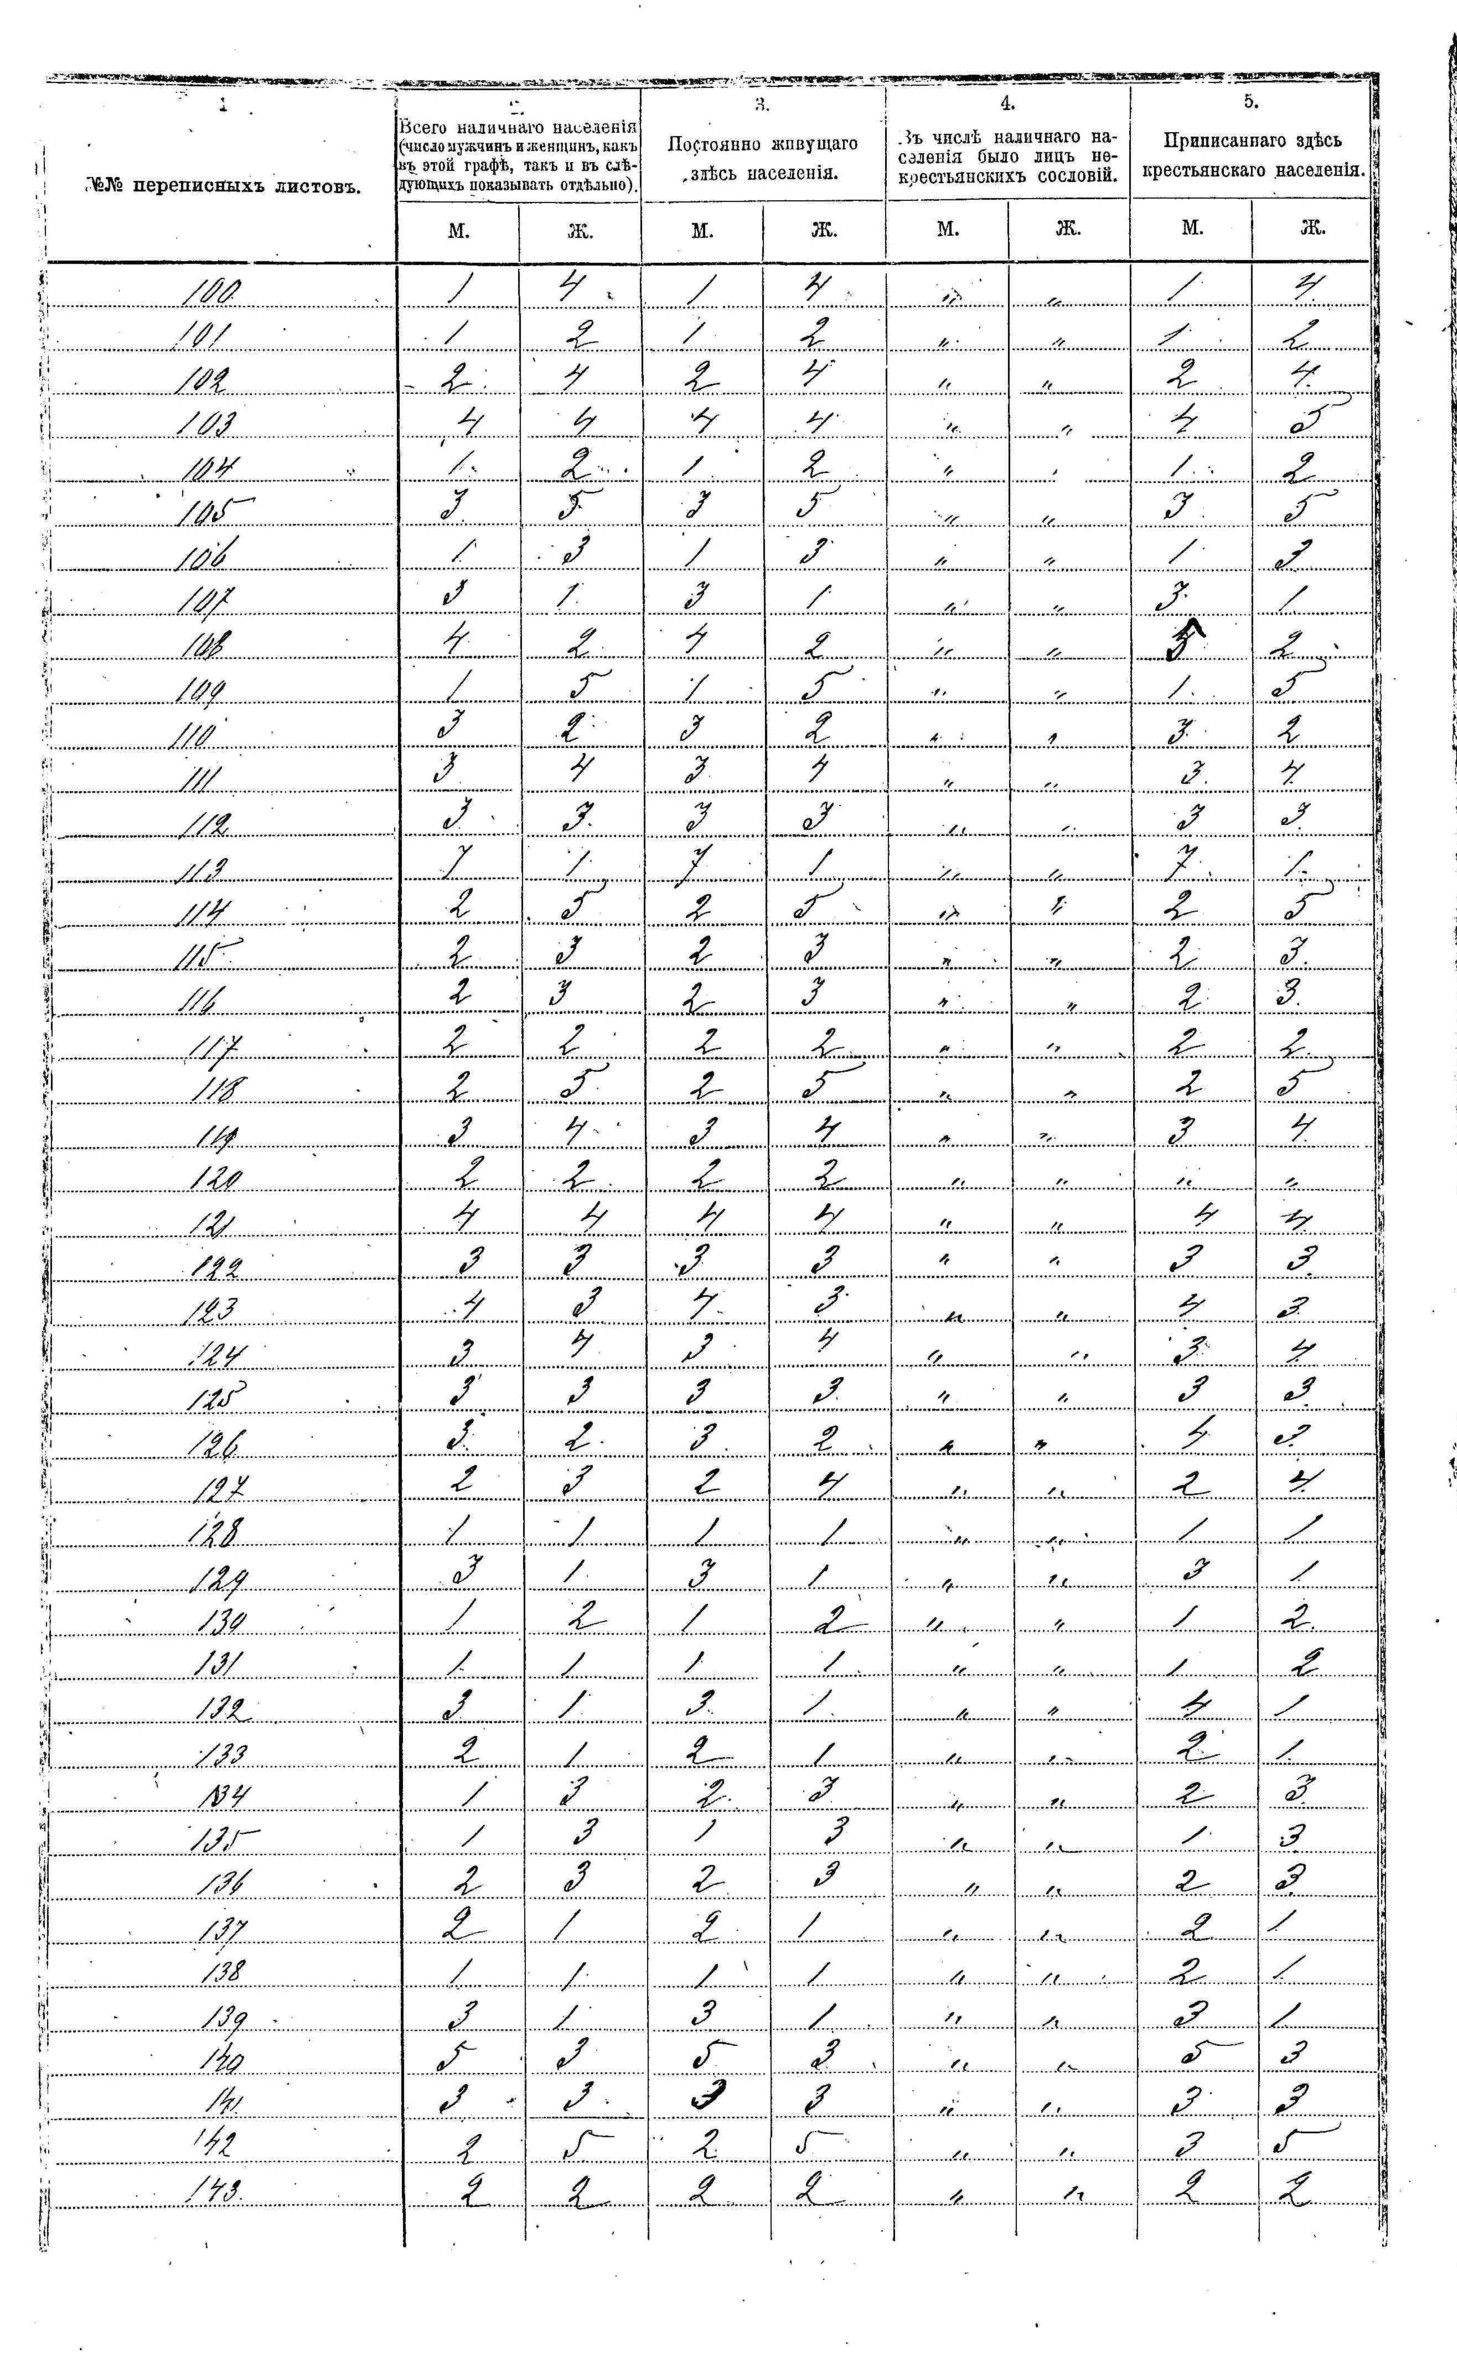 1 2. 3. 4. 5.
№№ переписныхъ листовъ.
Всего наличнаго населенія (число мужчинъ и женщинъ, какъ въ этой графѣ, такъ и въ слѣдующихъ показывать отдѣльно).
Постоянно живущаго здѣсь населенія.
Въ числѣ наличнаго населенія было лицъ некрестьянскихъ сословій.
Приписаннаго здѣсь крестьянскаго населенія.
М. Ж. М. Ж. М. Ж. М. Ж.
100 1 4 1 4 " " 1 4
101 1 2 1 2 " " 1 2
102 2 4 2 4 " " 2 4
103 4 4 4 4 " " 4 5
104 1 2 1 2 " 1 2
105 3 5 3 5 " " 3 5
106 1 3 1 3 " " 1 3
107 3 1 3 1 " " 3 1
108 4 2 4 2 " " 5 2
109 1 5 1 5 " " 1 5
110 3 2 3 2 " " 3 2
111 3 4 3 4 " " 3 4
112 3 3 3 3 " " 3 3
113 7 1 7 1 " " 7 1
114 2 5 2 5 " " 2 5
115 2 3 2 3 " " 2 3
116 2 3 2 3 " " 2 3
117 2 2 2 2 " " 2 2
118 2 5 2 5 " " 2 5
119 3 4 3 4 " " 3 4
120 2 2 2 2 " " " "
121 4 4 4 4 " " 4 4
122 3 3 3 3 " " 3 3
123 4 3 4 3 " " 4 3
124 3 4 3 4 " " 3 4
125 3 3 3 3 " " 3 3
126 3 2 3 2 " " 4 3
127 2 3 2 4 " " 2 4
128 1 1 1 1 " " 1 1
129 3 1 3 1 " " 3 1
130 1 2 1 2 " " 1 2
131 1 1 1 1 " " 1 2
132 3 1 3 1 " " 4 1
133 2 1 2 1 " " 2 1
134 1 3 2 3 " " 2 3
135 1 3 1 3 " " 1 3
136 2 3 2 3 " " 2 3
137 2 1 2 1 " " 2 1
138 1 1 1 1 " " 2 1
139 3 1 3 1 " " 3 1
140 5 3 5 3 " " 5 3
141 3 3 3 3 " " 3 3
142 2 5 2 5 " " 3 5
143 2 2 2 2 " " 2 2